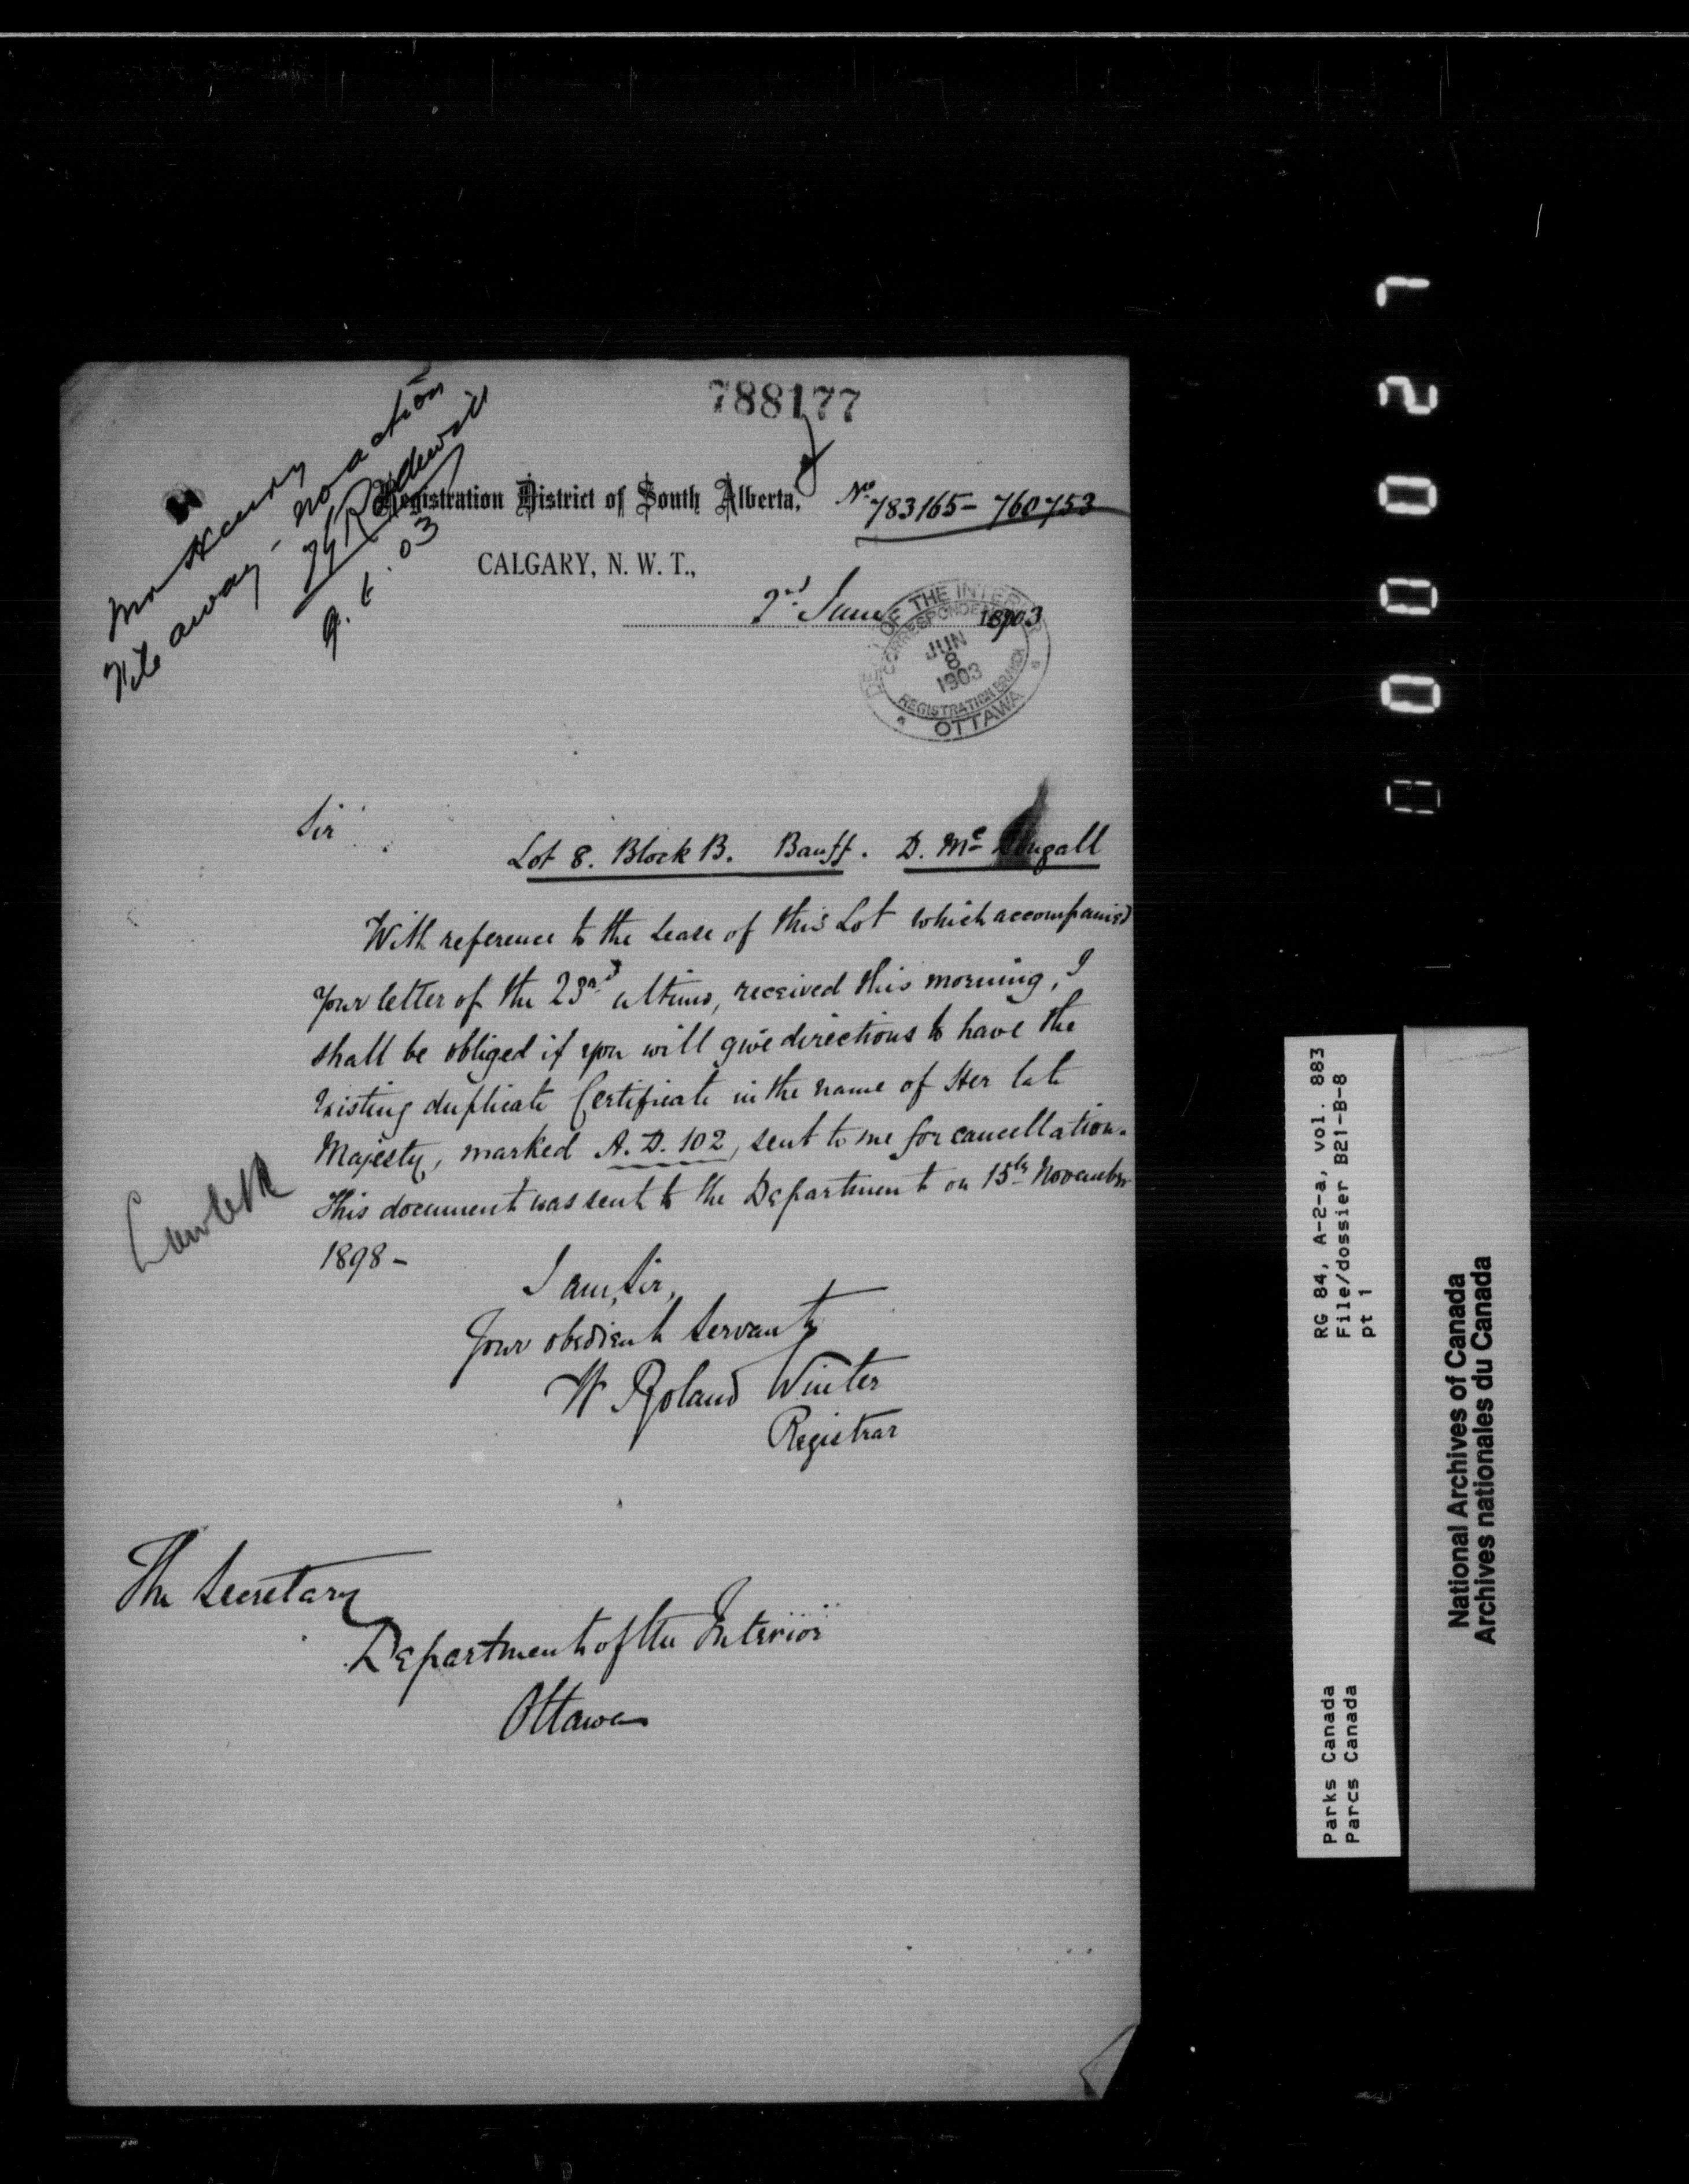 788177
Mr Kenny
File away - no action
9.6.03
Registration District of South Alberta,
No. 783165 - 760753
CALGARY, N. W. T.,
2nd June 1903
DEPT OF THE INTERIOR
CORRESPONDENCE
JUN
8
1903
REGISTRATION BRANCH
OTTAWA
Sir
Lot 8. Block B. Banff. D. Mc Dougall
With reference to the Lease of this Lot which accompanied
your letter of the 23rd ultimo, received this morning, I
shall be obliged if you will give directions to have the
existing duplicate Certificate in the name of Her late
Majesty, marked A. D. 102, sent to me for cancellation.
This document was sent to the Department on 15th November
1898 -
I am, Sir,
Your obedient Servant
W Roland Winter
Registrar
The Secretary
Department of the Interior
Ottawa
000027
RG 84, A-2-a, vol. 883
File/dossier B21-B-8
pt 1
Parks Canada
Parcs Canada
National Archives of Canada
Archives nationales du Canada